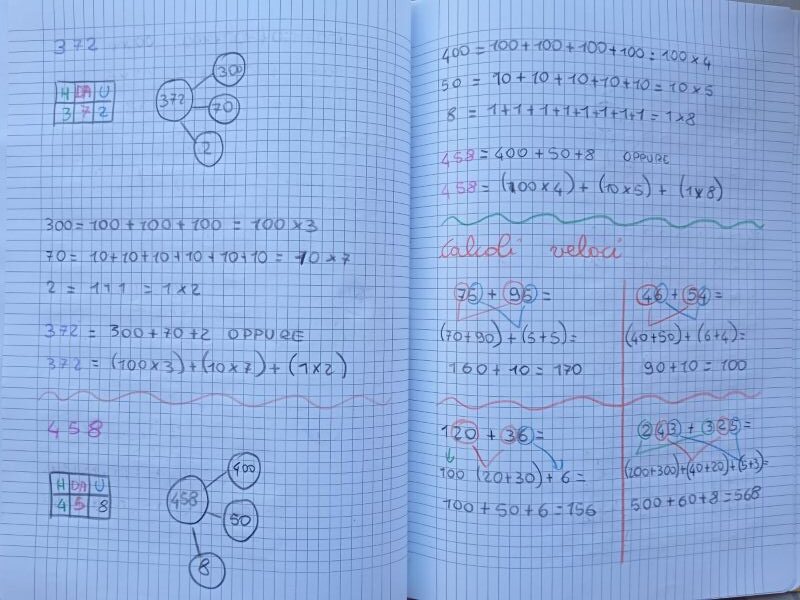 372
300
H DA U
372
70
3 7 2
2
300 = 100 + 100 + 100 = 100 × 3
70 = 10+10+10+10+10+10 = 10 × 7
2 = 1+1 = 1×2
372 = 300+70+2 OPPURE
372 = (100×3)+(10×7)+(1×2)
458
400
H DA U
458
4 5 8
50
8
400 = 100+100+100+100 = 100×4
50 = 10+10+10+10+10 = 10×5
8 = 1+1+1+1+1+1+1+1 = 1×8
458 = 400+50+8 OPPURE
458 = (100×4)+(10×5)+(1×8)
Calcoli veloci
75 + 95 =
(70+90)+(5+5)=
160+10=170
46+54=
(40+50)+(6+4)=
90+10=100
120 + 36=
100 (20+30)+6=
100+50+6=156
243 + 325=
(200+300)+(40+20)+(5+3)=
500+60+8=568